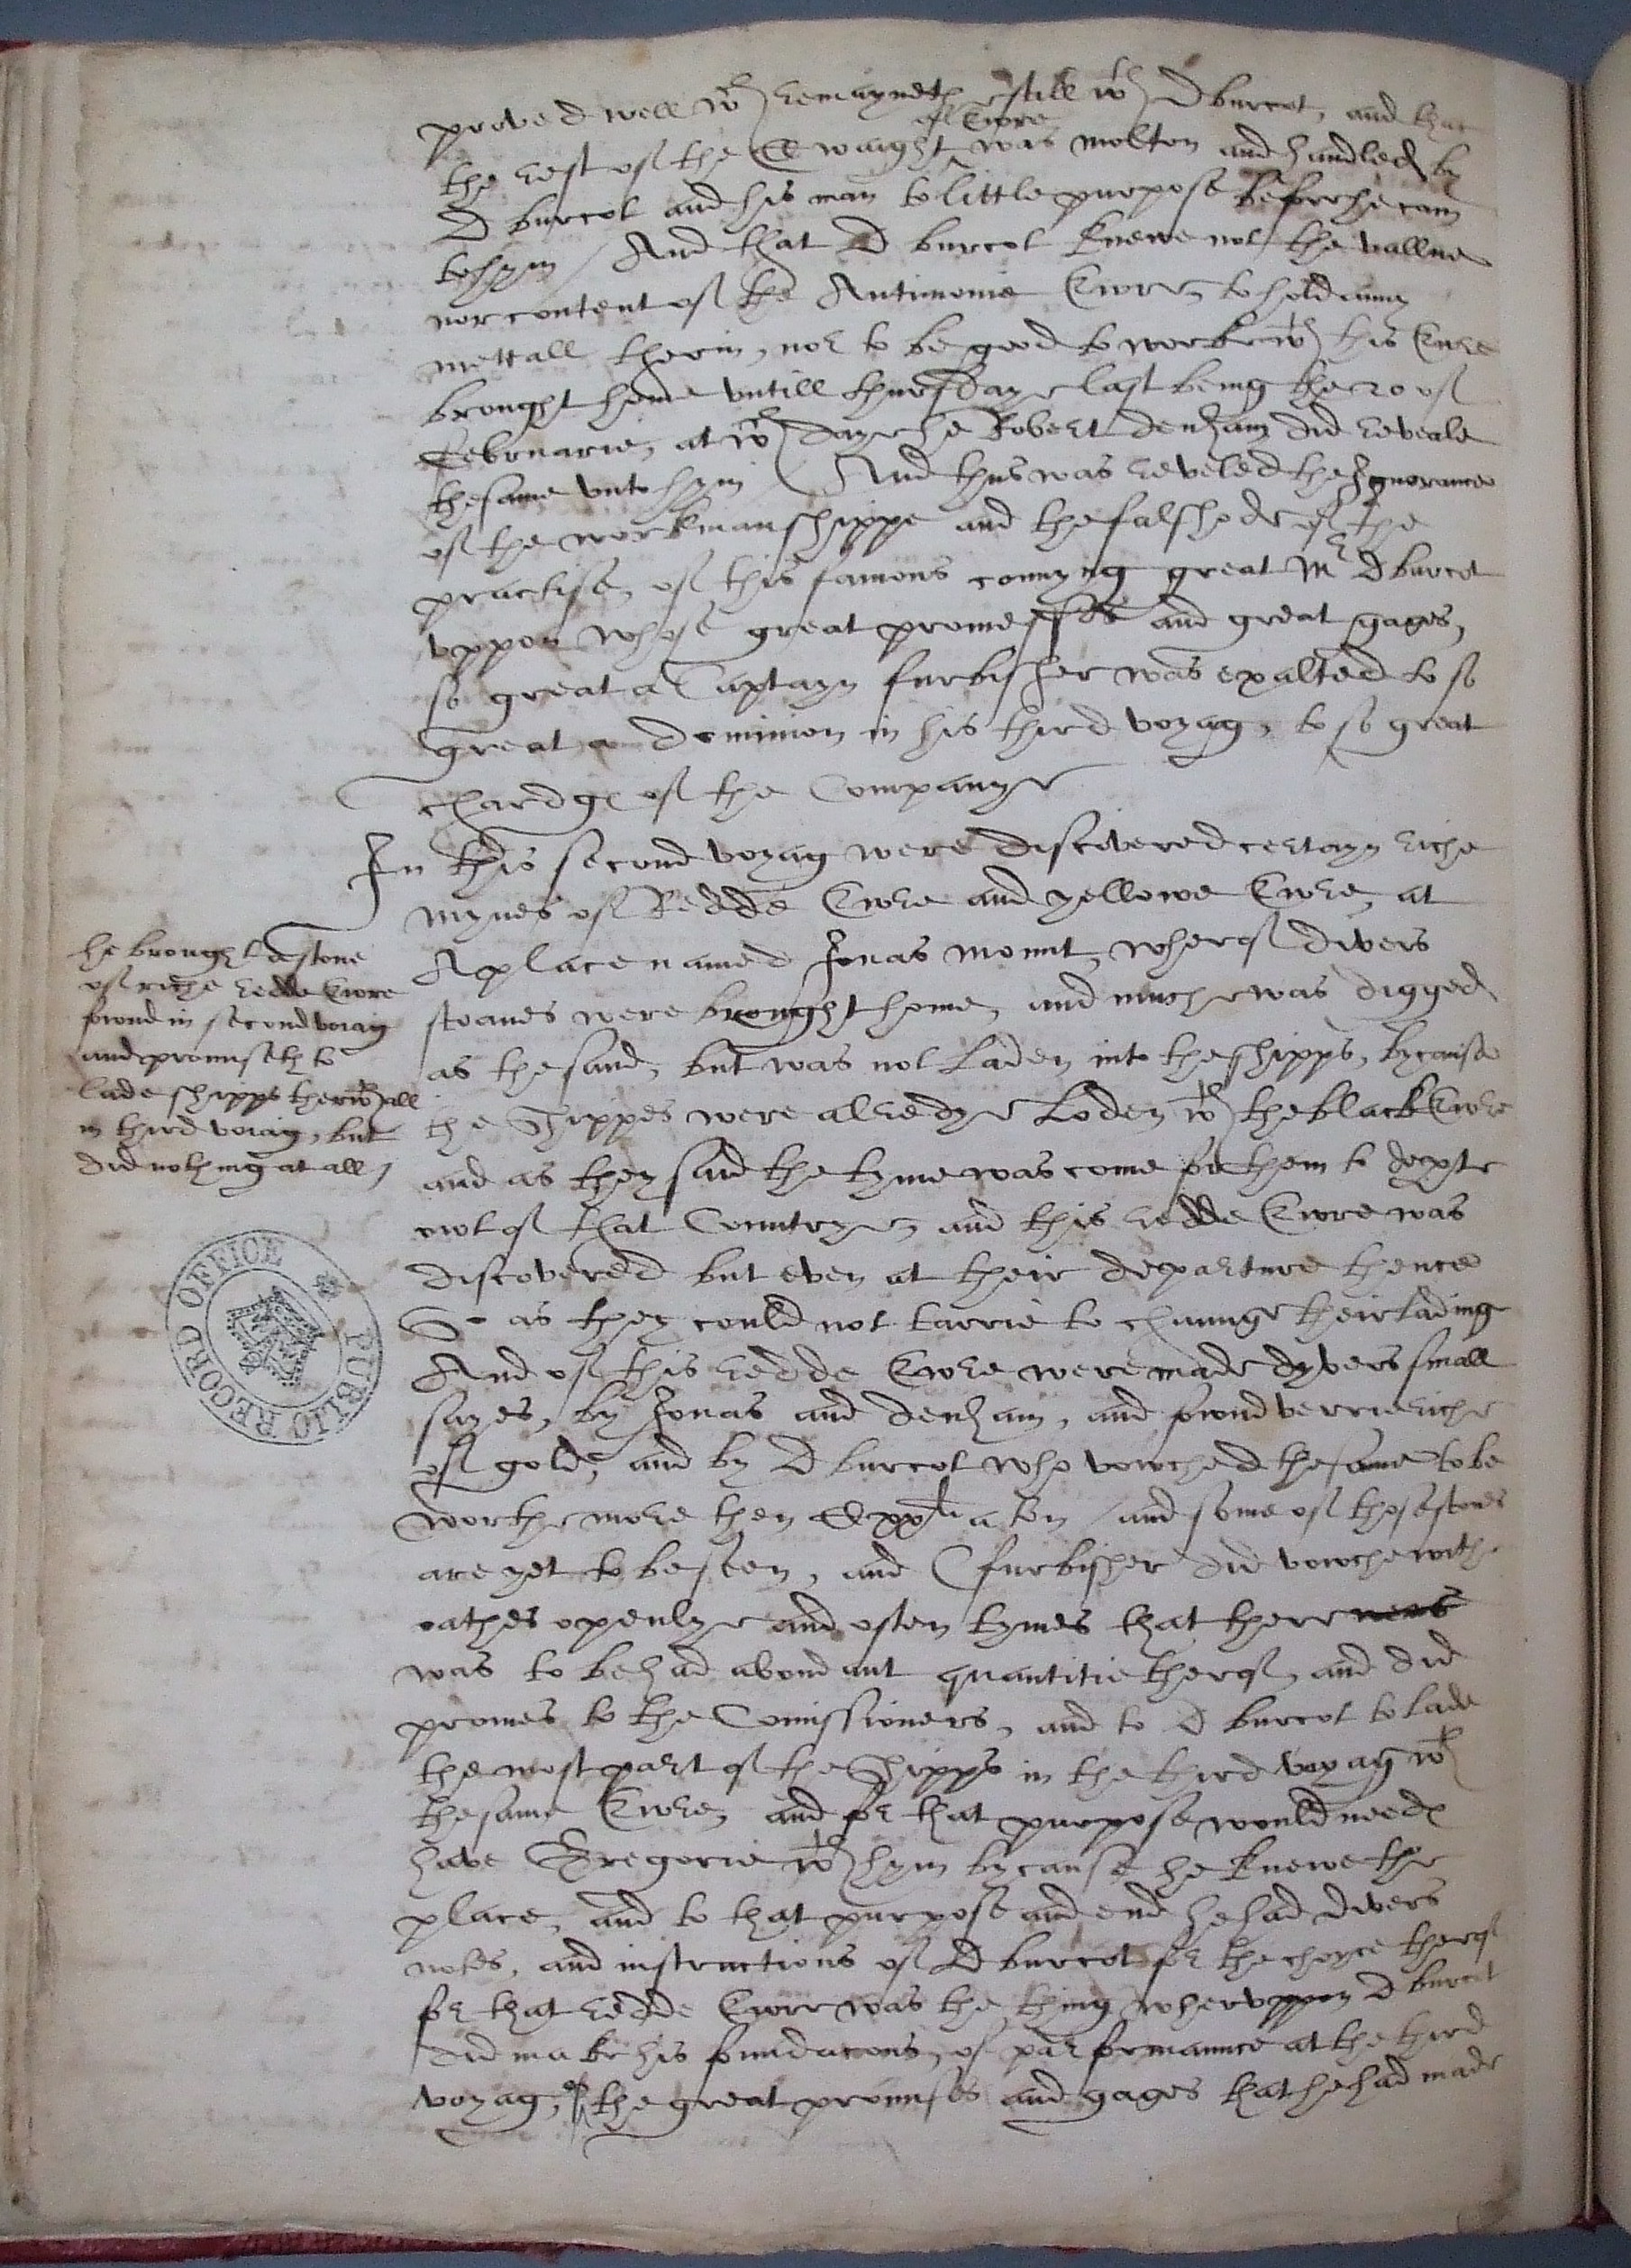 proved well wch remayneth still wth D burcot, and that
of Ewre
the rest of the C waight was molten and handled by
D burcot and his man to little purpose befor he cam
to hym / And that D burcot knewe not the vallue
nor content of the Antimonie Ewre, to hold anny
mettall therin, nor to be good to work wth this Ewre
brought home untill thursdaye last being the 20 of
Februarie, at wch daye he Robert denham did reveale
the same unto hym / And thus was reveled the Ignorance
of the workmanshippe and the falshode of the
practise, of this famous connyng great Mr D burcot
uppon whose great promesses and great gages,
so great a Captayn furbisher was exalted to so
great a dominion in his third voyag, to so great
chardge of the Companye
In this second voyag were discovered certayn riche
mynes of Redde Ewre and yellowe Ewre, at
A place named Jonas mount, wherof divers
stoanes were brought home, and muche was digged
as the sand, but was not Laden into the shipps, bycause
the Shippes were alredye Loden wth the black Ewre
and as they said the tyme was come for them to depte
owt of that Countrye, and this redde Ewre was
discovered but even at their departure thence
So as they could not tarrie to chaunge their lading
And of this redde Ewre were made dyvers small
sayes, by Jonas and denham, and found verrie riche
of gold, and by D burcot who vowched the same to be
worthe more then Cxxli a ton / and some of those stones
are yet to be seen, and C furbisher did vowche withe
oathes openlye and often tymes that there was
was to be had abondant quantitie therof, and did
promes to the Comissioners, and to D burcot to lade
the most part of the Shipps in the third voyag wth
the same Ewre, and for that purpose would needs
have Gregorie wth hym bycause he knewe the
place, and to that purpose and end he had divers
notes, and instructions of D burcot for the choyce therof
for that redde Ewre was the thing wheruppon D burcot
did make his fundacons, of parformaunce at the third
voyag, of the great promises and gages that he had made
he brought a stone
of riche redde Ewre
found in second voiag
and promiseth to
lade shipps therwth all
in third voiag, but
did nothing at all /
PUBLIC RECORD OFFICE